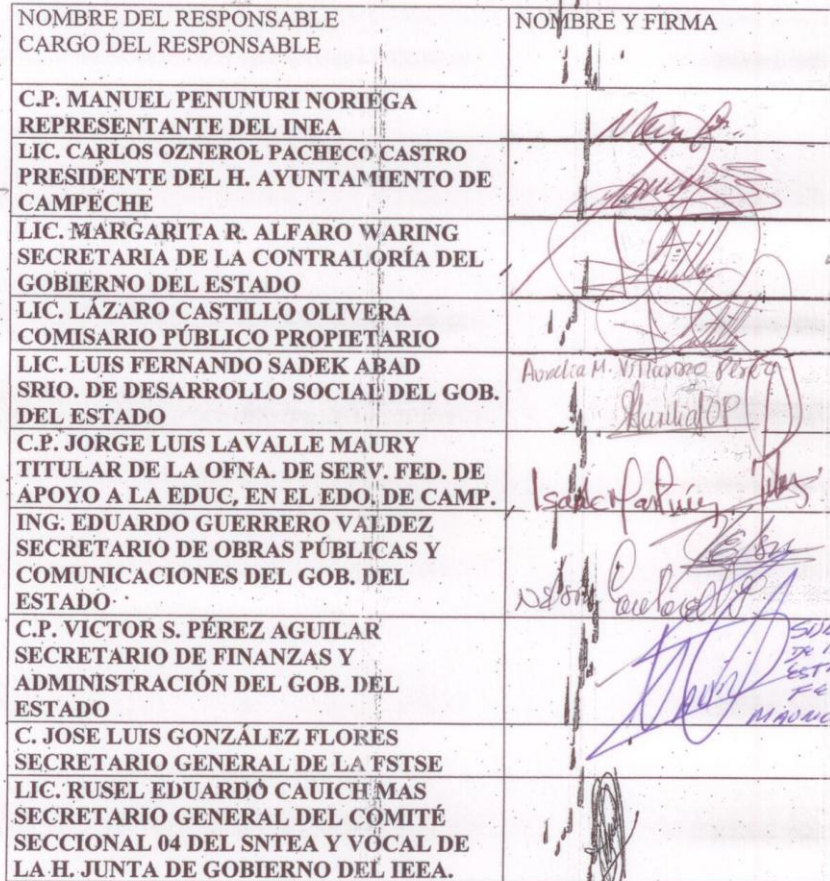 NOMBRE DEL RESPONSABLE
CARGO DEL RESPONSABLE
NOMBRE Y FIRMA
C.P. MANUEL PENUNURI NORIEGA
REPRESENTANTE DEL INEA
LIC. CARLOS OZNEROL PACHECO CASTRO
PRESIDENTE DEL H. AYUNTAMIENTO DE
CAMPECHE
LIC. MARGARITA R. ALFARO WARING
SECRETARIA DE LA CONTRALORÍA DEL
GOBIERNO DEL ESTADO
LIC. LÁZARO CASTILLO OLIVERA
COMISARIO PÚBLICO PROPIETARIO
LIC. LUIS FERNANDO SADEK ABAD
SRIO. DE DESARROLLO SOCIAL DEL GOB.
DEL ESTADO
Aurelia M. Pérez
C.P. JORGE LUIS LAVALLE MAURY
TITULAR DE LA OFNA. DE SERV. FED. DE
APOYO A LA EDUC, EN EL EDO. DE CAMP.
ING. EDUARDO GUERRERO VALDEZ
SECRETARIO DE OBRAS PÚBLICAS Y
COMUNICACIONES DEL GOB. DEL
ESTADO
C.P. VICTOR S. PÉREZ AGUILAR
SECRETARIO DE FINANZAS Y
ADMINISTRACIÓN DEL GOB. DEL
ESTADO
C. JOSE LUIS GONZÁLEZ FLORES
SECRETARIO GENERAL DE LA FSTSE
LIC. RUSEL EDUARDO CAUICH MAS
SECRETARIO GENERAL DEL COMITÉ
SECCIONAL 04 DEL SNTEA Y VOCAL DE
LA H. JUNTA DE GOBIERNO DEL IEEA.